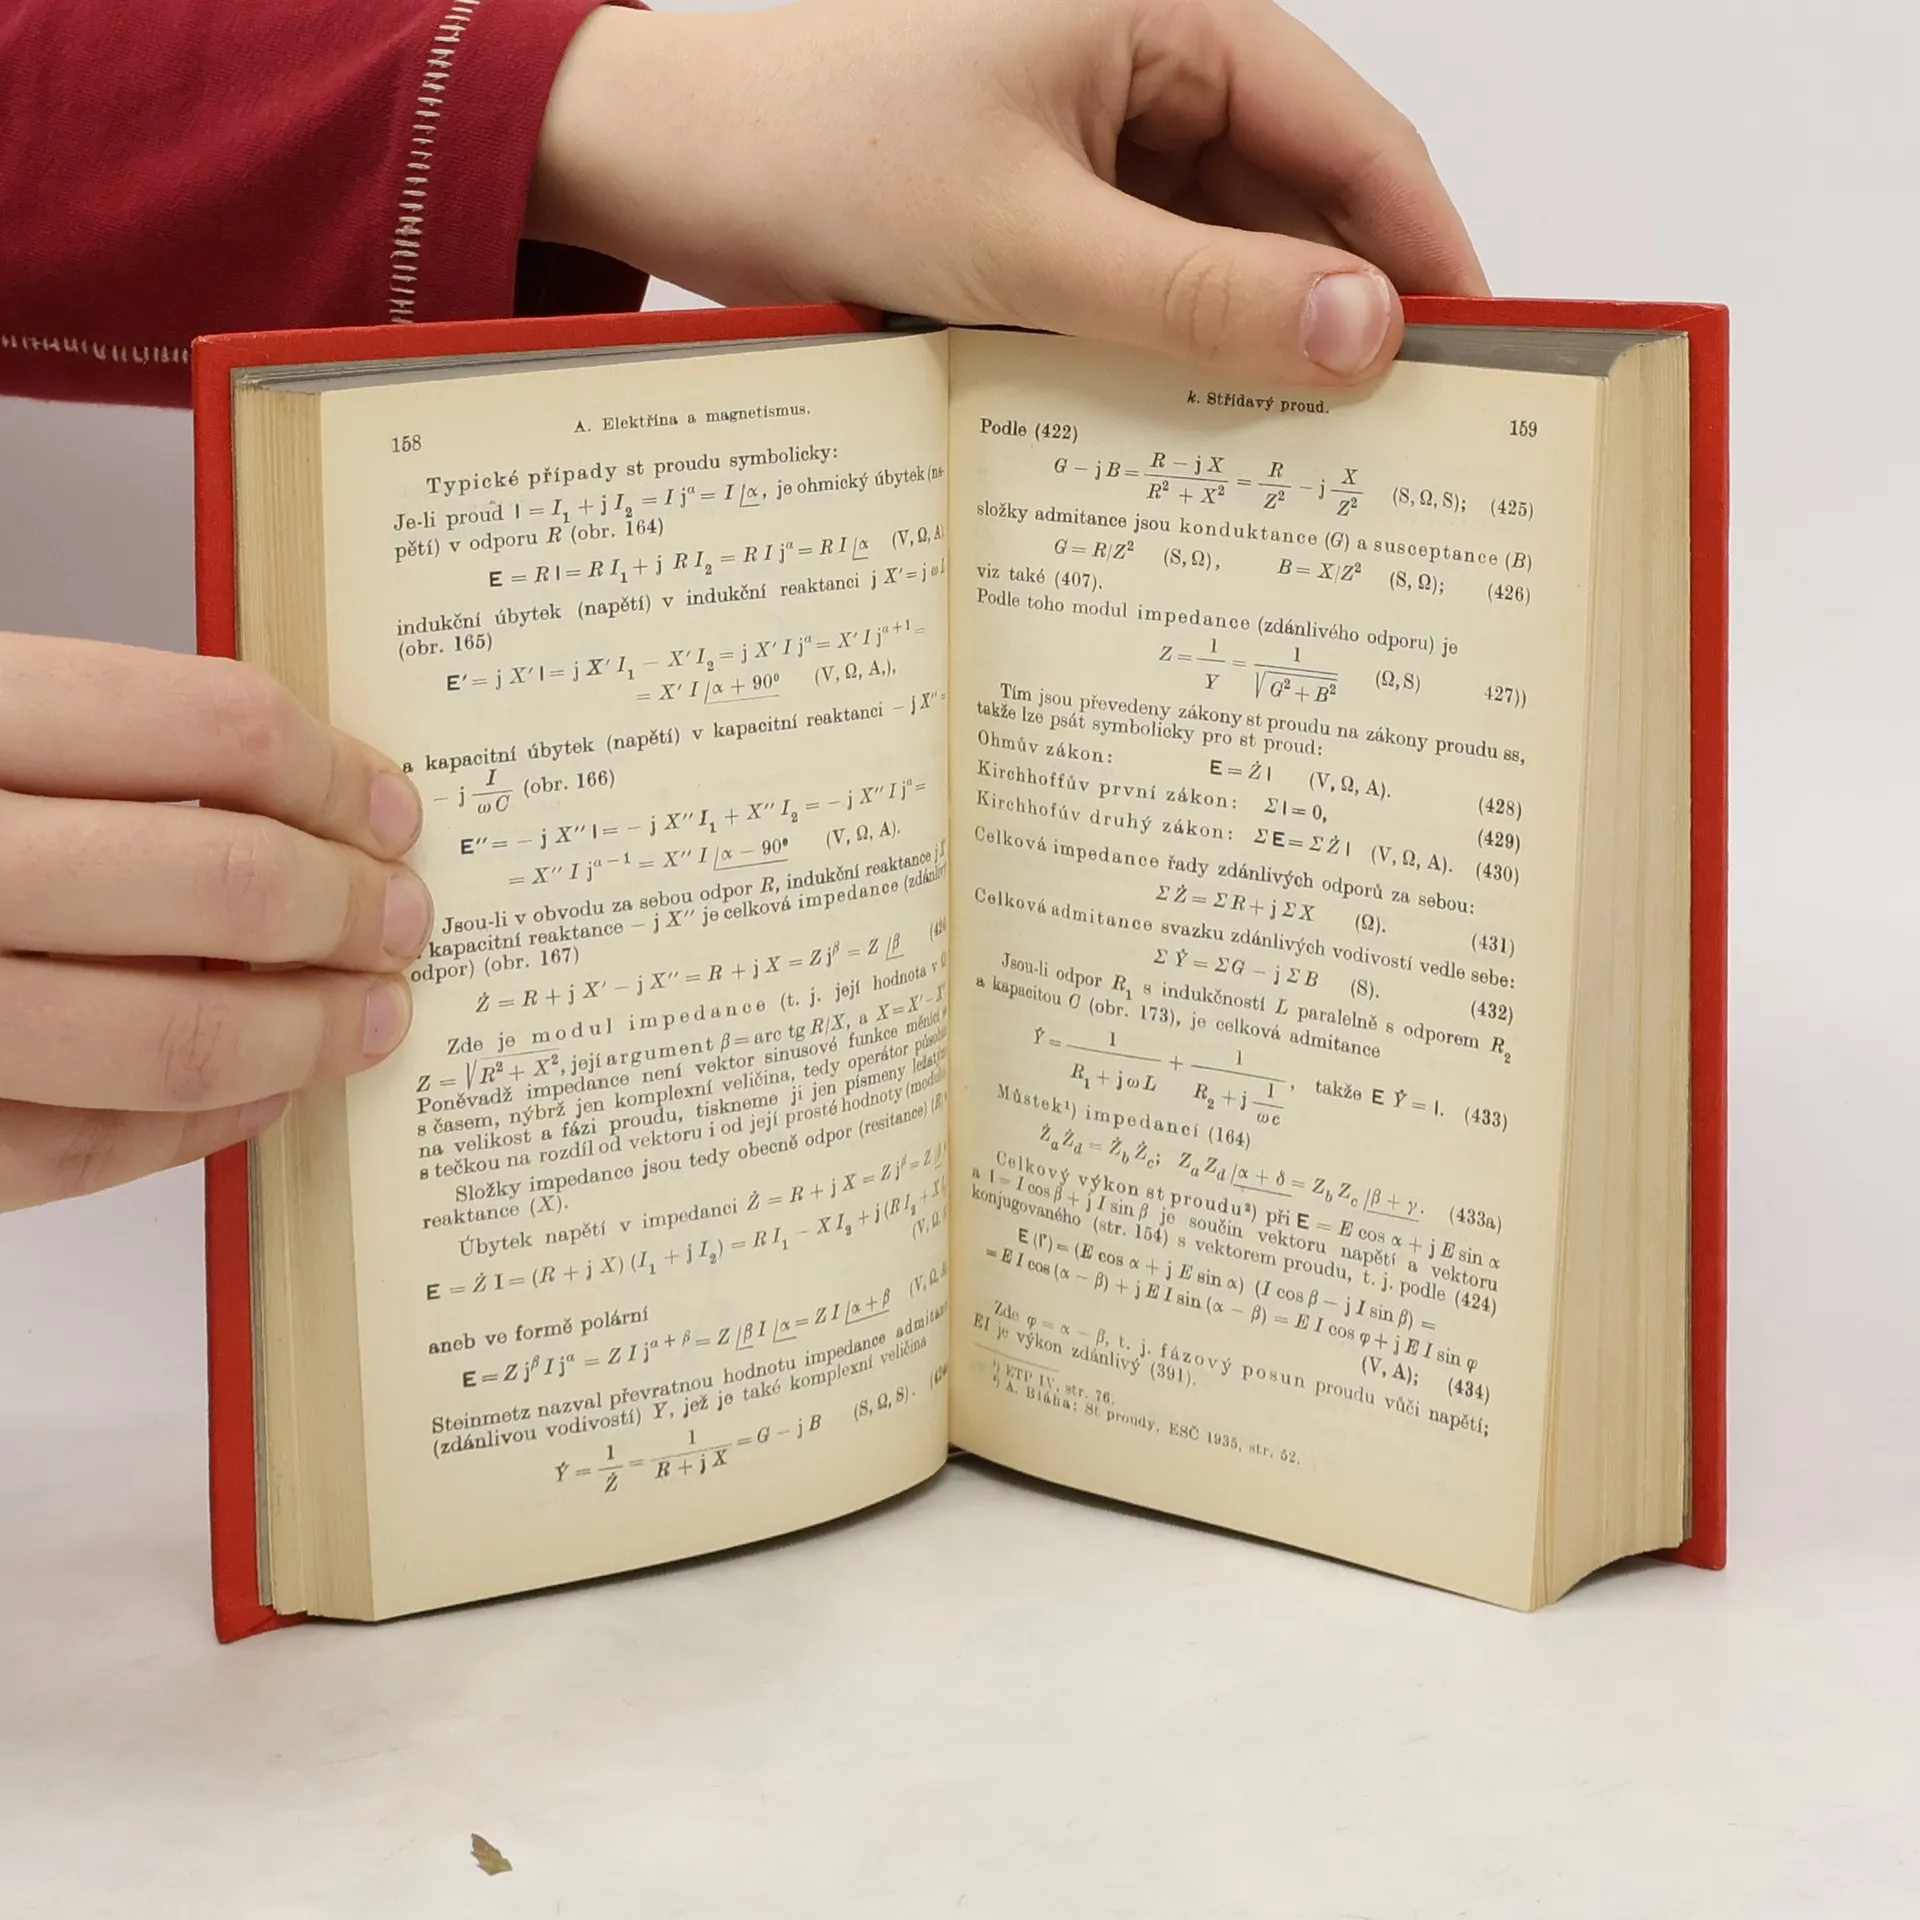 158
A. Elektřina a magnetismus.
Typické případy st proudu symbolicky:
Je-li proud I = I₁ + j I₂ = I jᵅ = I /α, je ohmický úbytek (na-
pětí) v odporu R (obr. 164)
E = R I = R I₁ + j R I₂ = R I jᵅ = R I /α (V, Ω, A)
indukční úbytek (napětí) v indukční reaktanci j X′ = j ω L
(obr. 165)
E′ = j X′ I = j X′ I₁ − X′ I₂ = j X′ I jᵅ = X′ I jᵅ⁺¹ =
= X′ I /α + 90° (V, Ω, A,),
a kapacitní úbytek (napětí) v kapacitní reaktanci − j X″ =
− j I/ω C (obr. 166)
E″ = − j X″ I = − j X″ I₁ + X″ I₂ = − j X″ I jᵅ =
= X″ I jᵅ⁻¹ = X″ I /α − 90° (V, Ω, A).
Jsou-li v obvodu za sebou odpor R, indukční reaktance j X′
kapacitní reaktance − j X″ je celková impedance (zdánlivý
odpor) (obr. 167)
Ż = R + j X′ − j X″ = R + j X = Z jᵝ = Z /β
Zde je modul impedance (t. j. její hodnota v Ω
Z = √R² + X², její argument β = arc tg R/X, a X = X′ − X″
Poněvadž impedance není vektor sinusové funkce měnící se
s časem, nýbrž jen komplexní veličina, tedy operátor působící
na velikost a fázi proudu, tiskneme ji jen písmeny ležatými
s tečkou na rozdíl od vektoru i od její prosté hodnoty (modulu
Složky impedance jsou tedy obecně odpor (resitance) (R)
reaktance (X).
Úbytek napětí v impedanci Ż = R + j X = Z jᵝ = Z /β
E = Ż I = (R + j X) (I₁ + j I₂) = R I₁ − X I₂ + j (R I₂ + X I₁)
(V, Ω, A
aneb ve formě polární
E = Z jᵝ I jᵅ = Z I jᵅ⁺ᵝ = Z /β I /α = Z I /α + β (V, Ω, A
Steinmetz nazval převratnou hodnotu impedance admitancí
(zdánlivou vodivostí) Y, jež je také komplexní veličina
Ẏ = 1/Ż = 1/(R + j X) = G − j B (S, Ω, S).
k. Střídavý proud.
159
Podle (422)
G − j B = (R − j X)/(R² + X²) = R/Z² − j X/Z² (S, Ω, S); (425)
složky admitance jsou konduktance (G) a susceptance (B)
G = R/Z² (S, Ω), B = X/Z² (S, Ω); (426)
viz také (407).
Podle toho modul impedance (zdánlivého odporu) je
Z = 1/Y = 1/√G² + B² (Ω, S) 427))
Tím jsou převedeny zákony st proudu na zákony proudu ss,
takže lze psát symbolicky pro st proud:
Ohmův zákon: E = Ż I (V, Ω, A). (428)
Kirchhoffův první zákon: Σ I = 0, (429)
Kirchhofúv druhý zákon: Σ E = Σ Ż I (V, Ω, A). (430)
Celková impedance řady zdánlivých odporů za sebou:
Σ Ż = Σ R + j Σ X (Ω). (431)
Celková admitance svazku zdánlivých vodivostí vedle sebe:
Σ Ẏ = Σ G − j Σ B (S). (432)
Jsou-li odpor R₁ s indukčností L paralelně s odporem R₂
a kapacitou C (obr. 173), je celková admitance
Ẏ = 1/(R₁ + j ω L) + 1/(R₂ + j 1/ωc), takže E Ẏ = I. (433)
Můstek¹) impedancí (164)
Żₐ Ż_d = Ż_b Ż_c; Zₐ Z_d /α + δ = Z_b Z_c /β + γ. (433a)
Celkový výkon st proudu²) při E = E cos α + j E sin α
a I = I cos β + j I sin β je součin vektoru napětí a vektoru
konjugovaného (str. 154) s vektorem proudu, t. j. podle (424)
E (I′) = (E cos α + j E sin α) (I cos β − j I sin β) =
= E I cos (α − β) + j E I sin (α − β) = E I cos φ + j E I sin φ
(V, A); (434)
Zde φ = α − β, t. j. fázový posun proudu vůči napětí;
EI je výkon zdánlivý (391).
¹) ETP IV, str. 76.
²) A. Bláha: St proudy, ESČ 1935, str. 52.